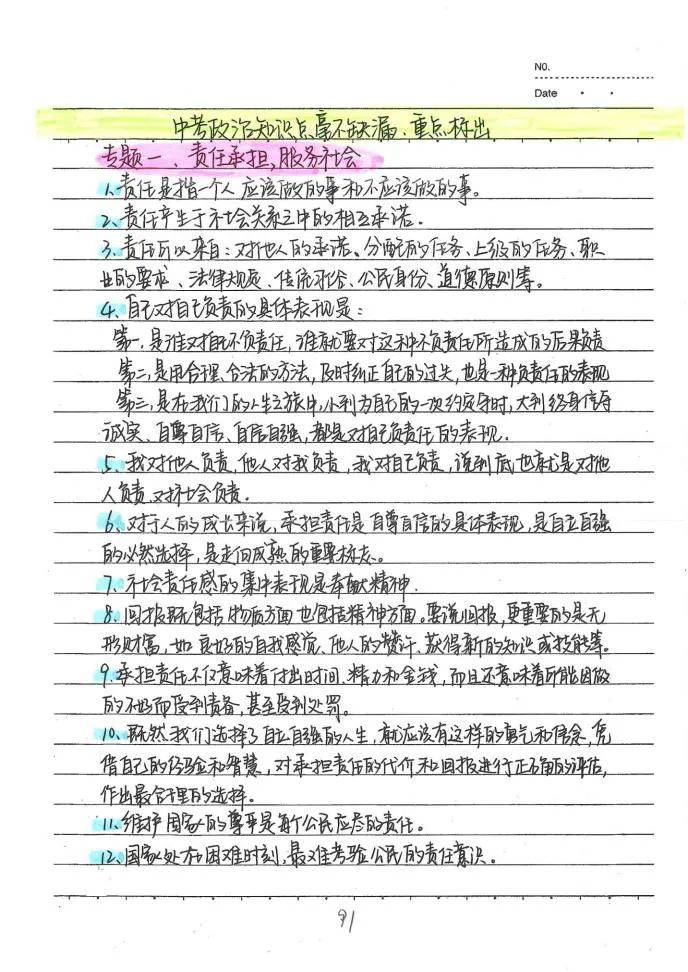 NO.
Date
中考政治知识点毫不缺漏、重点标出
专题一、责任承担,服务社会
1、责任是指一个人应该做的事和不应该做的事。
2、责任产生于社会关系之中的相互承诺.
3、责任可以来自:对他人的承诺、分配的任务、上级的任务、职
业的要求、法律规定、传统习俗、公民身份、道德原则等。
4、自己对自己负责的具体表现是:
第一.是谁对自己不负责任,谁就要对这种不负责任所造成的后果负责
第二,是用合理、合法的方法,及时纠正自己的过失,也是一种负责任的表现
第三,是在我们的人生之旅中,小到为自己的一次约定守时,大到终身信守
诚实、自尊自信、自信自强,都是对自己负责任的表现.
5、我对他人负责,他人对我负责,我对自己负责,说到底也就是对他
人负责.对社会负责.
6、对于人的成长来说,承担责任是自尊自信的具体表现,是自立自强
的必然选择,是走向成熟的重要标志。
7、社会责任感的集中表现是奉献精神.
8、回报既包括物质方面也包括精神方面。要说回报,更重要的是无
形财富,如良好的自我感觉、他人的赞许、获得新的知识或技能等。
9.承担责任不仅意味着付出时间、精力和金钱,而且还意味着可能因做
的不好而受到责备,甚至受到处罚。
10、既然我们选择了自立自强的人生,就应该有这样的勇气和信念,凭
借自己的经验和智慧,对承担责任的代价和回报进行正确的评估,
作出最合理的选择。
11、维护国家的尊严是每个公民应尽的责任。
12、国家处在困难时刻,最难考验公民的责任意识。
91